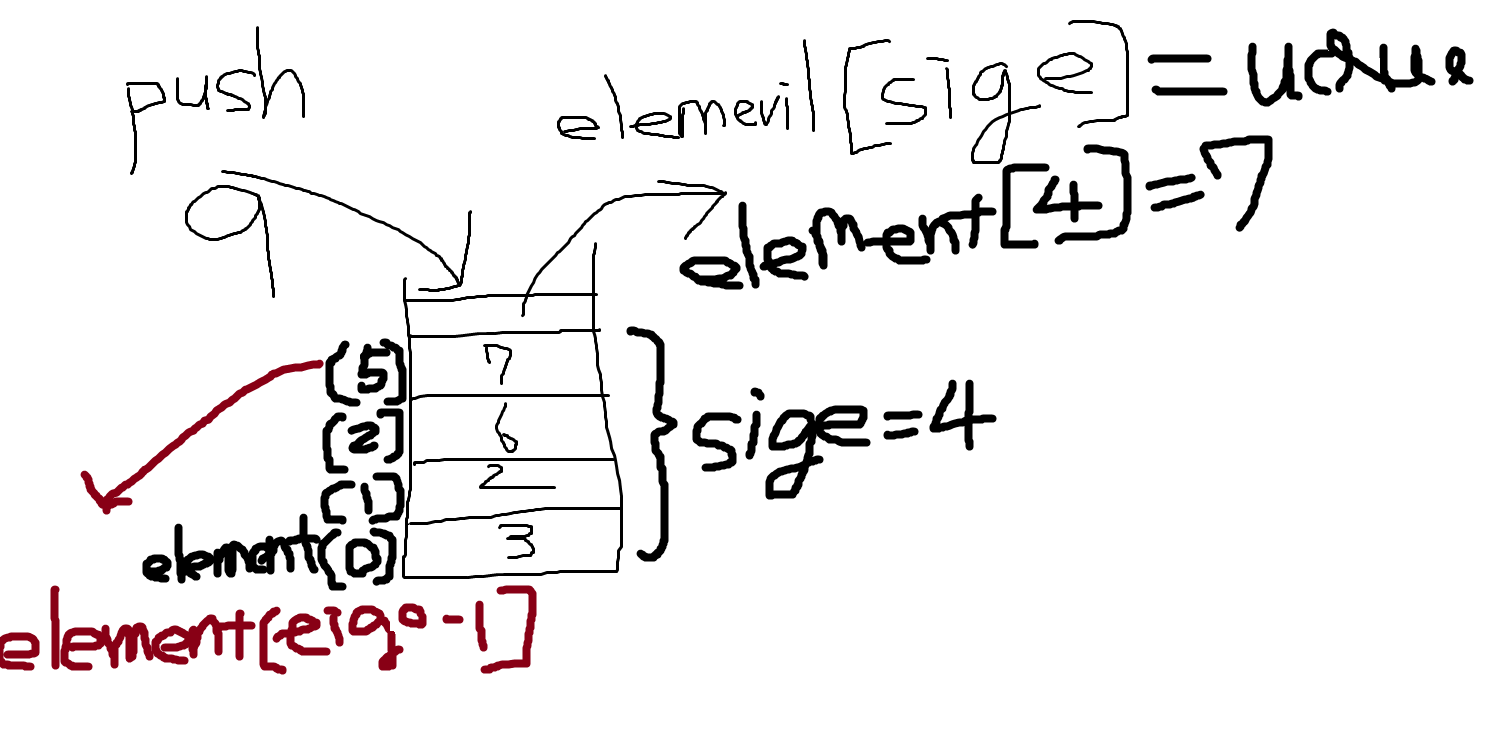 push
elemevil[sige] = value
9
element[4]=7
(5] 7
(2] 6
(1] 2
element(0] 3
sige=4
element[eige-1]